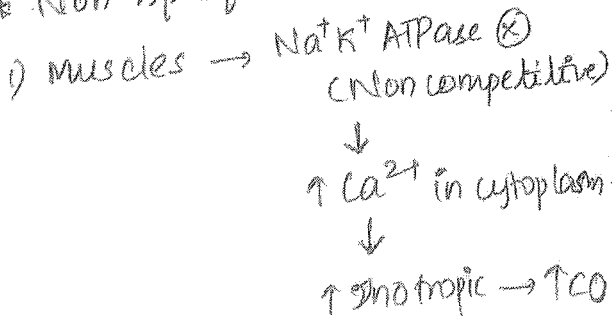 Non
i) Muscles → Na⁺K⁺ ATPase ⊗
(Non competitive)
↓
↑ Ca²⁺ in cytoplasm
↓
↑ Inotropic → ↑CO